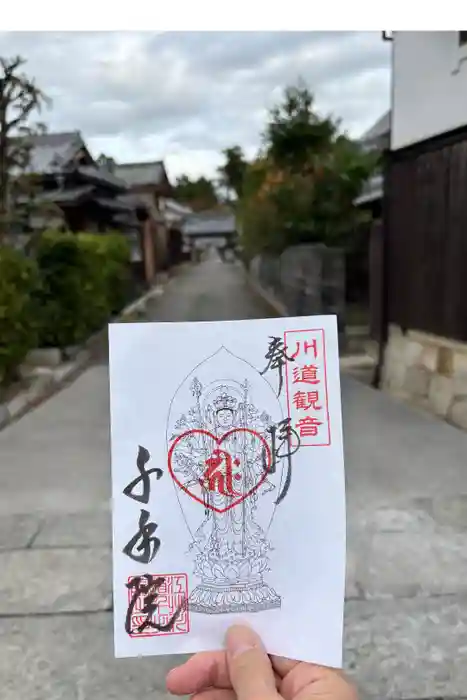 川道観音
奉拝
千手院